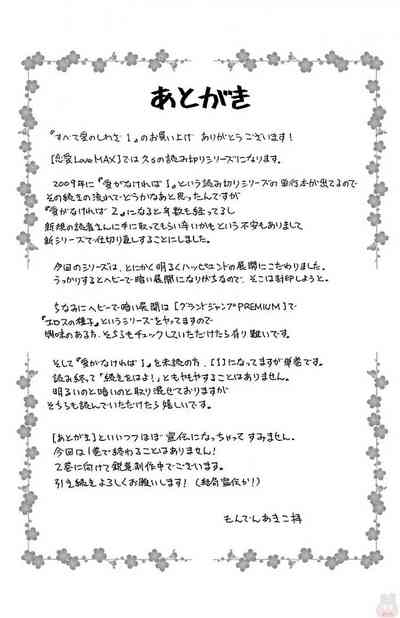 あとがき
『すべて愛のしわざ 1』のお買い上げ ありがとうございます!
[恋愛LoveMAX]では久々の読み切りシリーズになります。
2009年に『愛がなければ 1』という読み切りシリーズの単行本が出てるので
その続きの流れでどうかなあと思ったんですが
『愛がなければ 2』になると年数も経ってるし
新規の読者さんに手に取ってもらい辛いかもという不安もありまして
新シリーズで仕切り直しすることにしました。
今回のシリーズは、とにかく明るくハッピーエンドの展開にこだわりました。
うっかりするとヘビーで暗い展開になりがちなので、そこは封印しようと。
ちなみにヘビーで暗い展開は[グランドジャンプPREMIUM]で
『エロスの種子』というシリーズをやってますので
興味のある方、そちらもチェックしていただけたら有り難いです。
そして『愛がなければ 1』を未読の方、[1]になってますが単巻です。
読み終って「続きをはよ!」ともやもやすることはありません。
明るいのと暗いのと取り混ぜておりますが
そちらも読んでいただけたら嬉しいです。
[あとがき]といいつつほぼ宣伝になっちゃってすみません。
今回は1巻で終わることはありません!
2巻に向けて鋭意制作中でございます。
引き続きよろしくお願いします!(結局宣伝か!)
もんでんあきこ拝